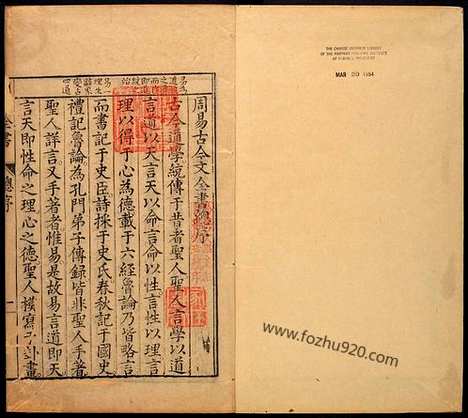 THE CHINESE-JAPANESE LIBRARY
OF THE HARVARD-YENCHING INSTITUTE
AT HARVARD UNIVERSITY
MAR 20
周易古今文全書總序
古今道學統傳于昔者聖人聖人言學以道
言道以天言天以命言命以性言性以理言
理以得于心為德載于六經魯論乃皆略言
而書記于史臣詩採于史氏春秋記于國史
禮記魯論為孔門弟子傳錄皆非聖人手著
聖人詳言又手著者惟易是故易言道即天
言天即性命之理心之德聖人模寫于卦畫
全書 總序 一
www.fozhu920.com